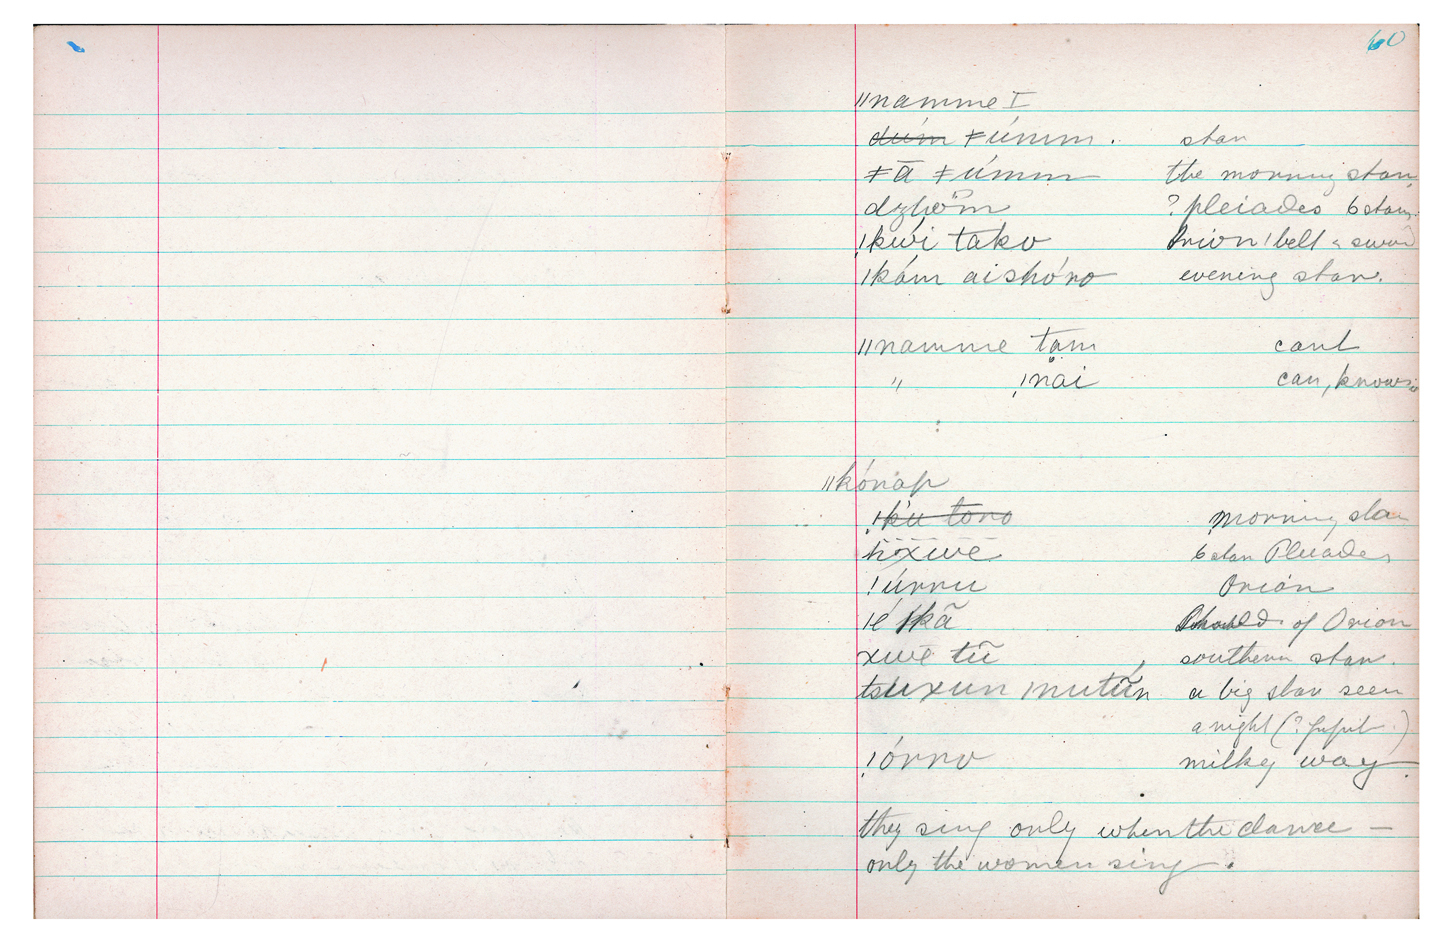 60
ǁnamme I
dúm ǂúmm. star
ǂā ǂúmm the morning star,
? pleiades 6 stars.
ǃkwi tako Orion's belt & sword
ǃkám aishóro evening star.
ǁnamme tam cant
〃 ǃnai can, knows
ǁkónap
ǃku toro morning star
xwe 6 star Pleiades
ǃúrru Orion
ǀé ǀkã of Orion
xwē tũ southern star.
tsuxun mutũn a big star seen
a night (? )
ǃórro milky way.
they sing only when the dance —
only the women sing.